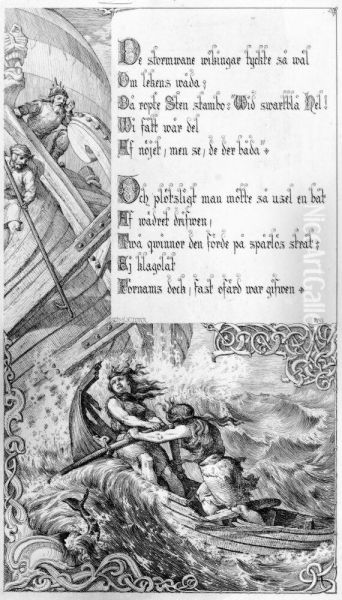 De stormwane wikingar tyckte så wal
Om lekens wåda;
Då ropte Sten stambo: "Wid swartblå Hel!
Wi fått wår del
Af nöjet, men se, de der båda"
Och plötsligt man mötte så usel en båt
Af wädret drifwen;
Twå qwinnor den förde på spårlös stråt;
Ej klagolåt
Förnams dock, fast ofärd war gifwen